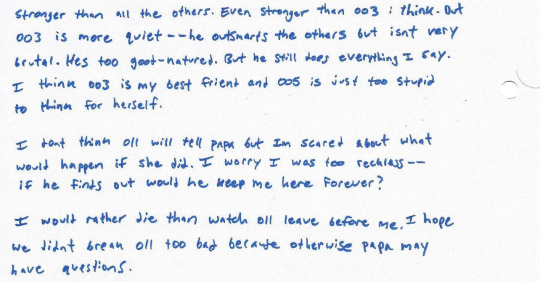 stronger than all the others. Even stronger than 003 i think. But
003 is more quiet -- he outsmarts the others but isnt very
brutal. Hes too goot-natured. But he still does everything I say.
I think 003 is my best friend and 005 is just too stupid
to think for herself.
I dont think 011 will tell papa but Im scared about what
would happen if she did. I worry I was too reckless --
if he finds out would he keep me here forever?
I would rather die than watch 011 leave before me. I hope
we didnt break 011 too bad because otherwise papa may
have questions.